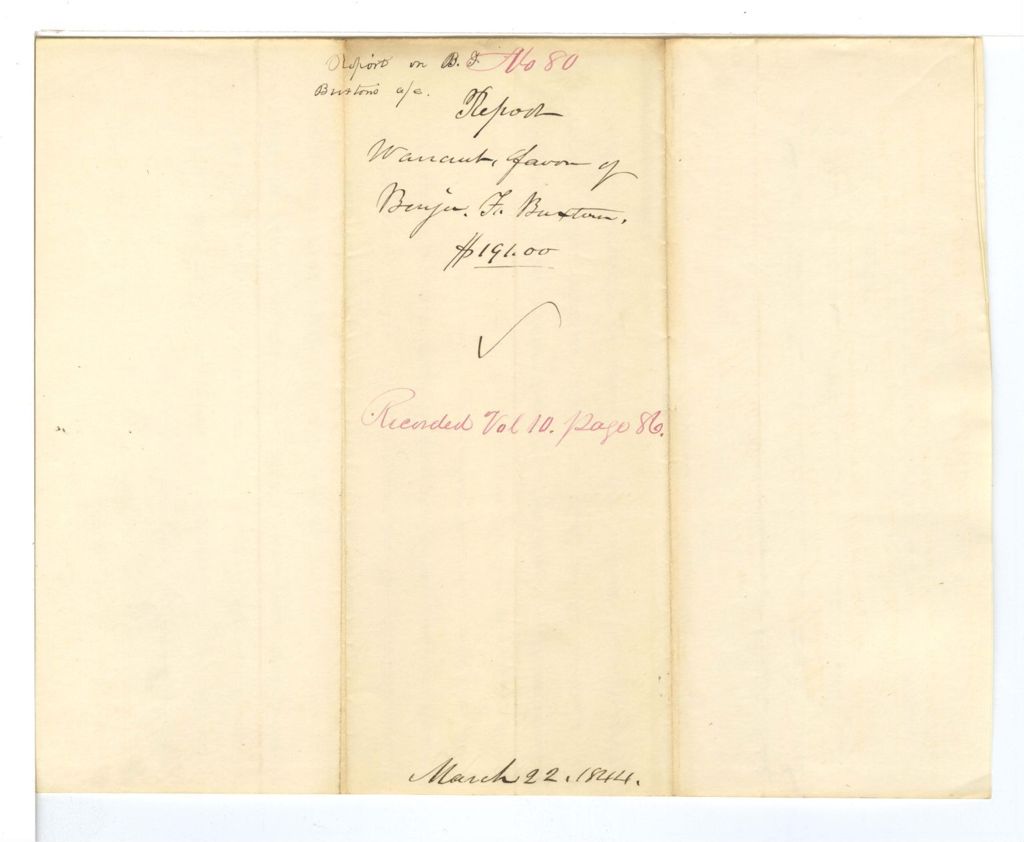 Report on B. F.
Buxton's a/c.
No 80
Report
Warrant, favor of
Benja. F. Buxton,
$191.00
Recorded Vol 10. page 86.
March 22. 1844.